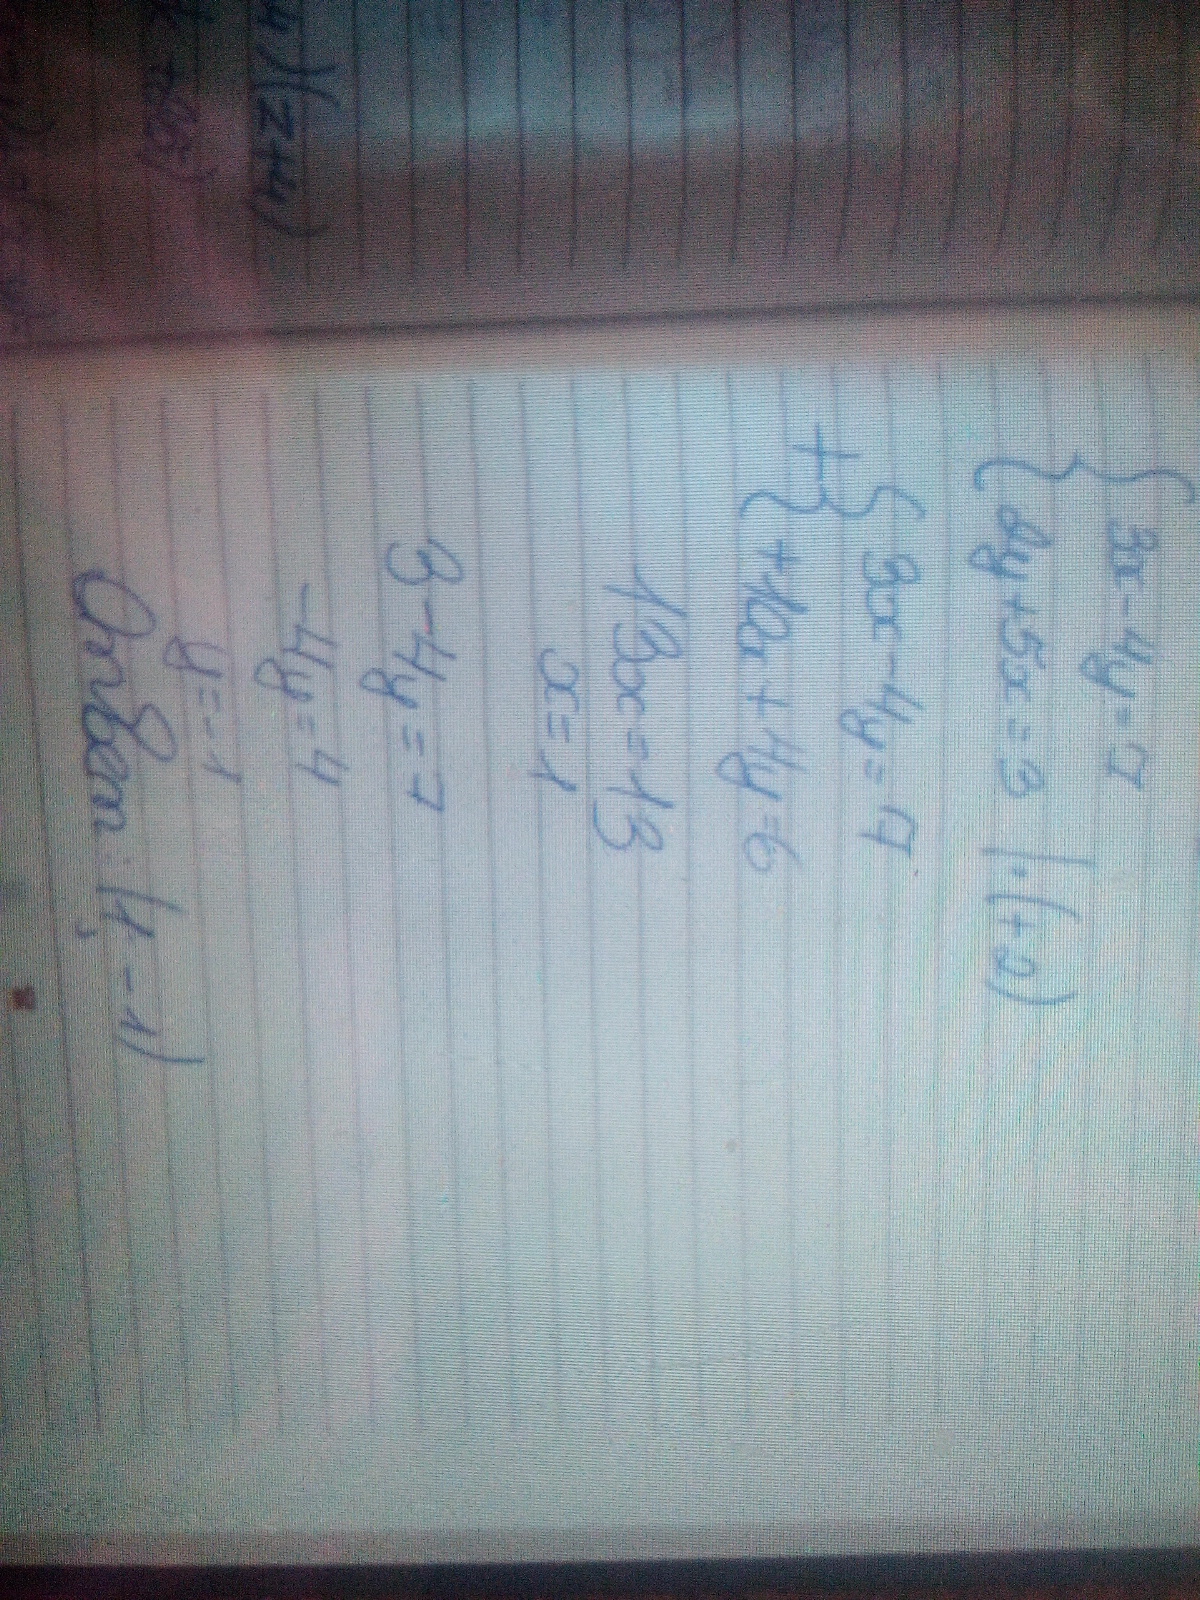 3x-4y=7
2y+5x=3 |·(+2)
+ 3x-4y=7
+10x+4y=6
13x=13
x=1
3-4y=7
-4y=4
y=-1
Ответ: (1; -1)
)(z+4)